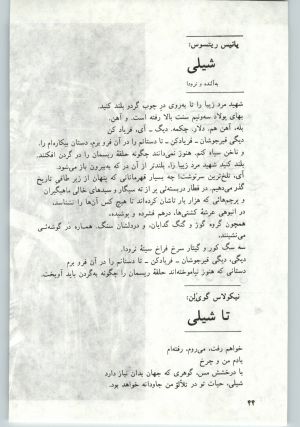 یانیس ریتسوس:
شیلی
به آلنده و نرودا
شهید مرد زیبا را تا به‌روی دَرِ چوب گردو بلند کنید.
بهای پولاد سه‌ونیم سنت بالا رفته است. و آهن.
بله، آهن هم، دلار، چکمه. دیگ - آی، فریاد کن
دیگی قیرجوشان - فریادکن - تا دستانم را در آن فرو برم، دستان بیکاره‌ام را.
و ناخن سیاه کنم. هنوز نمی‌دانند چگونه حلقهٔ ریسمان را در گردن افکنند.
بلند کنید شهید مرد زیبا را، بلندتر از آن در که به‌بیرون باز می‌شود.
آی، تلخ‌ترین سرنوشت! چه بسیار قهرمانانی که پنهان از زیر طاقی تاریخ
گذر می‌دهیم. در قطار دربستی بر از ته سیگار و سبدهای خالی ماهیگیران
و پرچم‌هایی که هزار بار تاشان کرده‌اند تا هیچ کس آن‌ها را نشناسد،
در انبوهی عرشهٔ کشتی‌ها، درهم فشرده و پوشیده،
همچون گروه کوژ و گنگ گدایان، و دودلشان سنگ. همباره در گوشه‌ئی
می‌نشینند.
سه سگ کور و گیتار سرخ فراخ سینهٔ نرودا.
دیگی، دیگی قیرجوشان - فریادکن - تا دستانم را در آن فرو برم
دستانی که هنوز نیاموخته‌اند حلقهٔ ریسمان را چگونه به‌گردن باید آویخت.
نیکولاس گوی‌لن:
تا شیلی
خواهم رفت، می‌روم، رفته‌ام
یادم من و چرخ
با درخشش مس، گوهری که جهان بدان نیاز دارد
شیلی، حیات تو در تلألؤ من جاودانه خواهد بود.
۴۴